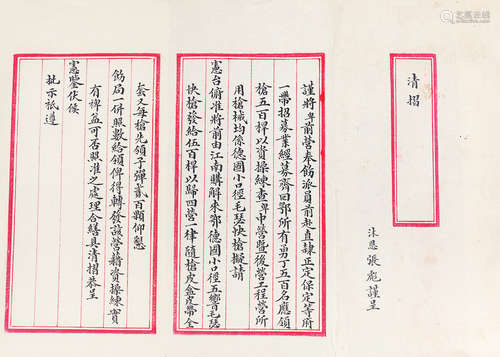 清摺
沐恩張彪謹呈
謹將卑前營奉飭派員前赴直隸正定保定等府
一帶招募業經募齊回鄂所有勇丁五百名應領
槍五百桿以資操練查卑中營暨後營工程營所
用槍械均係德國小口徑毛瑟快槍擬請
憲台俯准將前由江南購解來鄂德國小口徑五響毛瑟
快槍發給伍百桿以歸四營一律隨槍皮盒皮帶全
套又每槍先領子彈貳百顆仰懇
飭局一併照數給領俾得轉發該營藉資操練實
有裨益可否照准之處理合繕具清摺恭呈
憲鑒伏候
批示祗遵